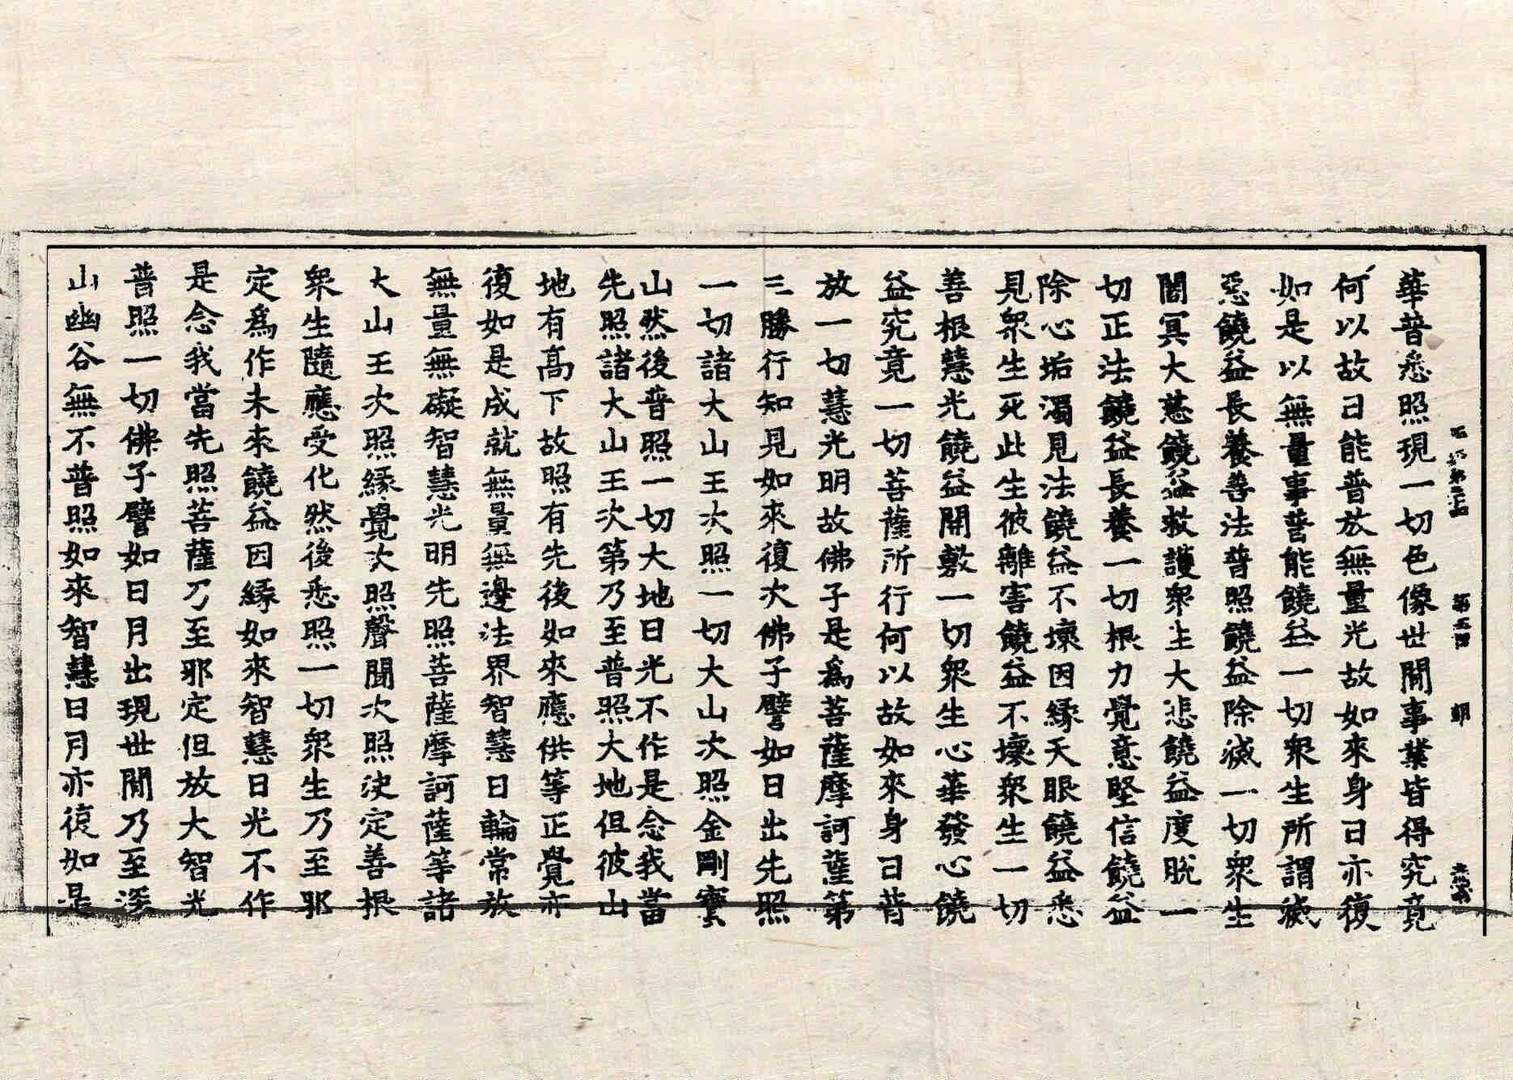 華普悉照現一切色像世間事業皆得究竟
何以故日能普放無量光故如來身日亦復
如是以無量事普能饒益一切衆生所謂滅
惡饒益長養善法普照饒益除滅一切衆生
闇冥大慈饒益救護衆生大悲饒益度脫一
切正法饒益長養一切根力覺意堅信饒益
除心垢濁見法饒益不壞因緣天眼饒益悉
見衆生死此生彼離害饒益不壞衆生一切
善根慧光饒益開敷一切衆生心華發心饒
益究竟一切菩薩所行何以故如來身日普
放一切慧光明故佛子是爲菩薩摩訶薩第
三勝行知見如來復次佛子譬如日出先照
一切諸大山王次照一切大山次照金剛寶
山然後普照一切大地日光不作是念我當
先照諸大山王次第乃至普照大地但彼山
地有高下故照有先後如來應供等正覺亦
復如是成就無量無邊法界智慧日輪常放
無量無礙智慧光明先照菩薩摩訶薩等諸
大山王次照緣覺次照聲聞次照決定善根
衆生隨應受化然後悉照一切衆生乃至邪
定爲作未來饒益因緣如來智慧日光不作
是念我當先照菩薩乃至邪定但放大智光
普照一切佛子譬如日月出現世間乃至深
山幽谷無不普照如來智慧日月亦復如是